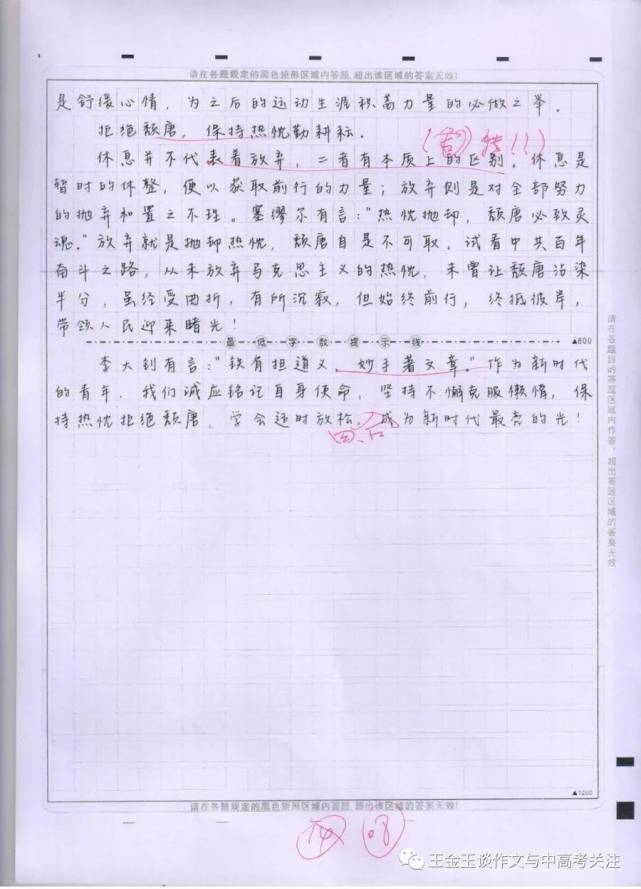 请在各题规定的黑色矩形区域内答题，超出该区域的答案无效!
是舒缓心情，为之后的运动生涯积蓄力量的必做之举．
拒绝颓唐，保持热忱勤耕耘．
休息并不代表着放弃，二者有本质上的区别．休息是
暂时的休整，便以获取前行的力量；放弃则是对全部努力
的抛弃和置之不理。塞缪尔有言："热忱抛却，颓唐必致灵
魂．"放弃就是抛却热忱，颓唐自是不可取，试看中共百年
奋斗之路，从未放弃马克思主义的热忱，未曾让颓唐沾染
半分，虽经受曲折，有所沉寂，但始终前行，终抵彼岸，
带领人民迎来曙光！
最低字数提示线
▲800
李大钊有言："铁肩担道义，妙手著文章．"作为新时代
的青年，我们诚应铭记自身使命，坚持不懈克服懒惰，保
持热忱拒绝颓唐，学会适时放松，成为新时代最亮的光！
请在各题目的答题区域内作答，超出答题区域的答案无效
▲1200
请在各题规定的黑色矩形区域内答题，超出该区域的答案无效!
王金玉谈作文与中高考关注